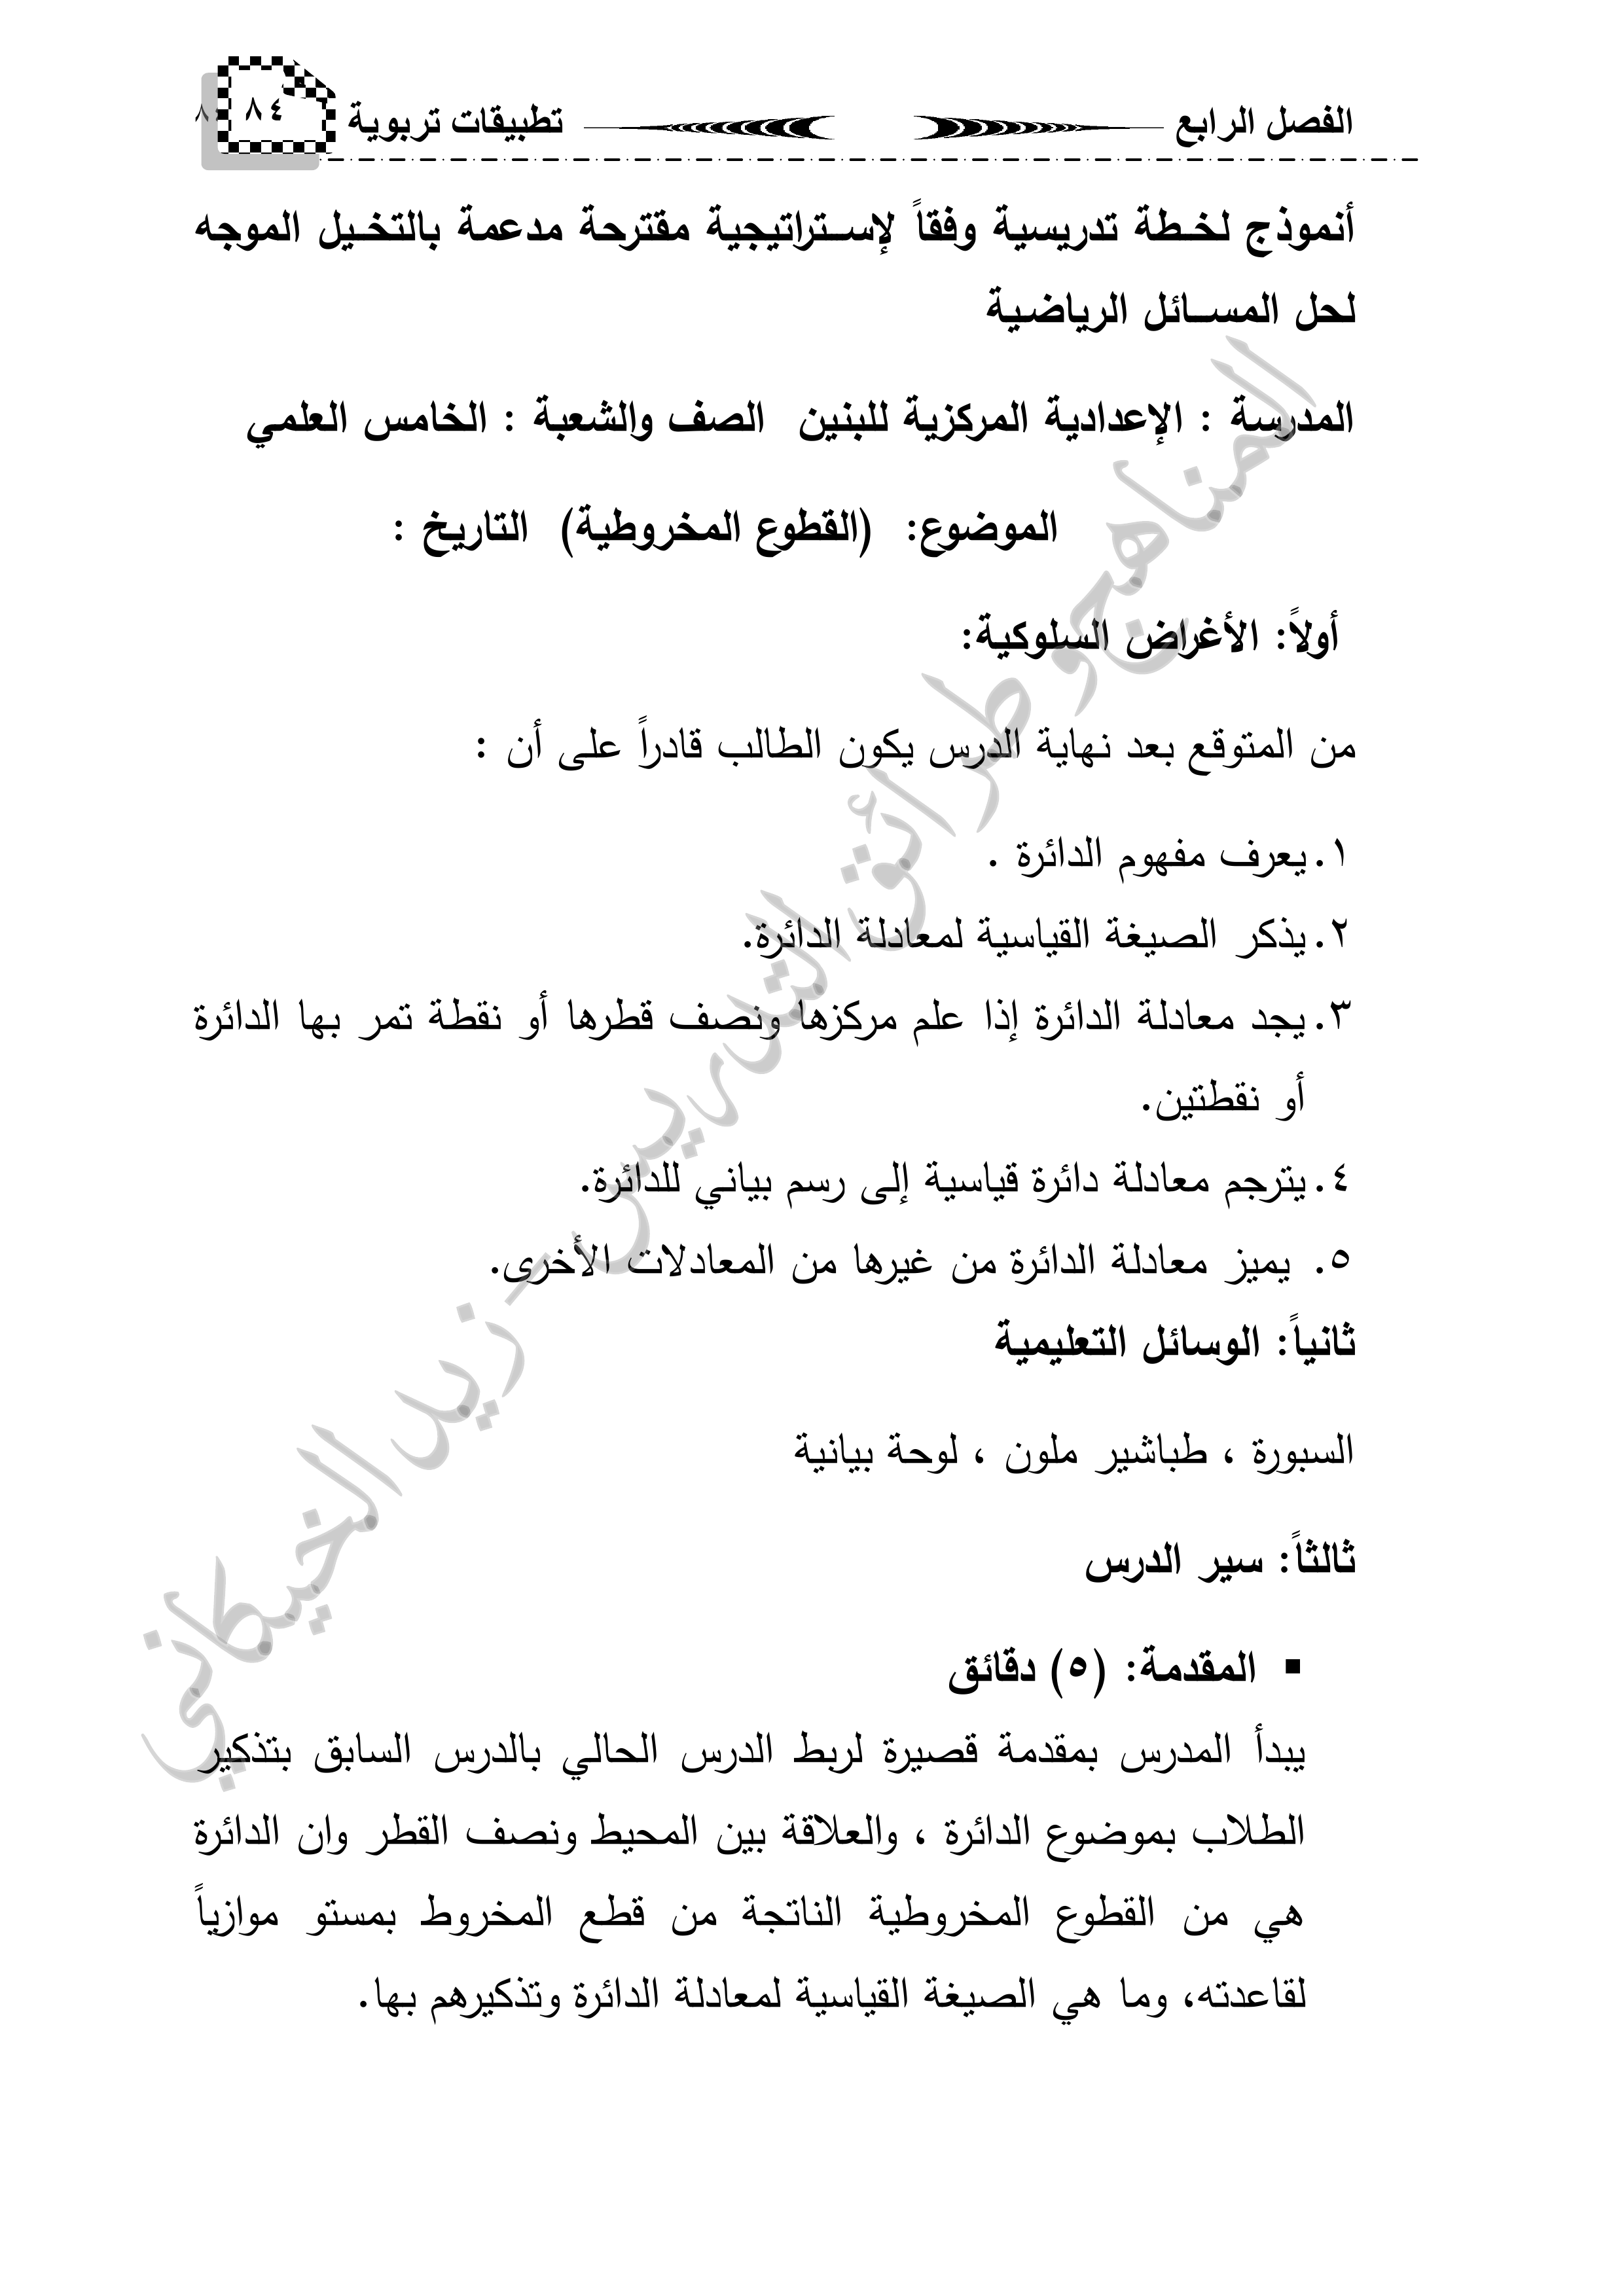 الفصل الرابع تطبيقات تربوية ٨٤
أنموذج لخطة تدريسية وفقاً لإستراتيجية مقترحة مدعمة بالتخيل الموجه
لحل المسائل الرياضية
المدرسة : الإعدادية المركزية للبنين الصف والشعبة : الخامس العلمي
الموضوع: (القطوع المخروطية) التاريخ :
أولاً: الأغراض السلوكية:
من المتوقع بعد نهاية الدرس يكون الطالب قادراً على أن :
١. يعرف مفهوم الدائرة .
٢. يذكر الصيغة القياسية لمعادلة الدائرة.
٣. يجد معادلة الدائرة إذا علم مركزها ونصف قطرها أو نقطة تمر بها الدائرة
أو نقطتين.
٤. يترجم معادلة دائرة قياسية إلى رسم بياني للدائرة.
٥. يميز معادلة الدائرة من غيرها من المعادلات الأخرى.
ثانياً: الوسائل التعليمية
السبورة ، طباشير ملون ، لوحة بيانية
ثالثاً: سير الدرس
▪ المقدمة: (٥) دقائق
يبدأ المدرس بمقدمة قصيرة لربط الدرس الحالي بالدرس السابق بتذكير
الطلاب بموضوع الدائرة ، والعلاقة بين المحيط ونصف القطر وان الدائرة
هي من القطوع المخروطية الناتجة من قطع المخروط بمستو موازياً
لقاعدته، وما هي الصيغة القياسية لمعادلة الدائرة وتذكيرهم بها.
المناهج وطرائق التدريس - زيد الخيكاني